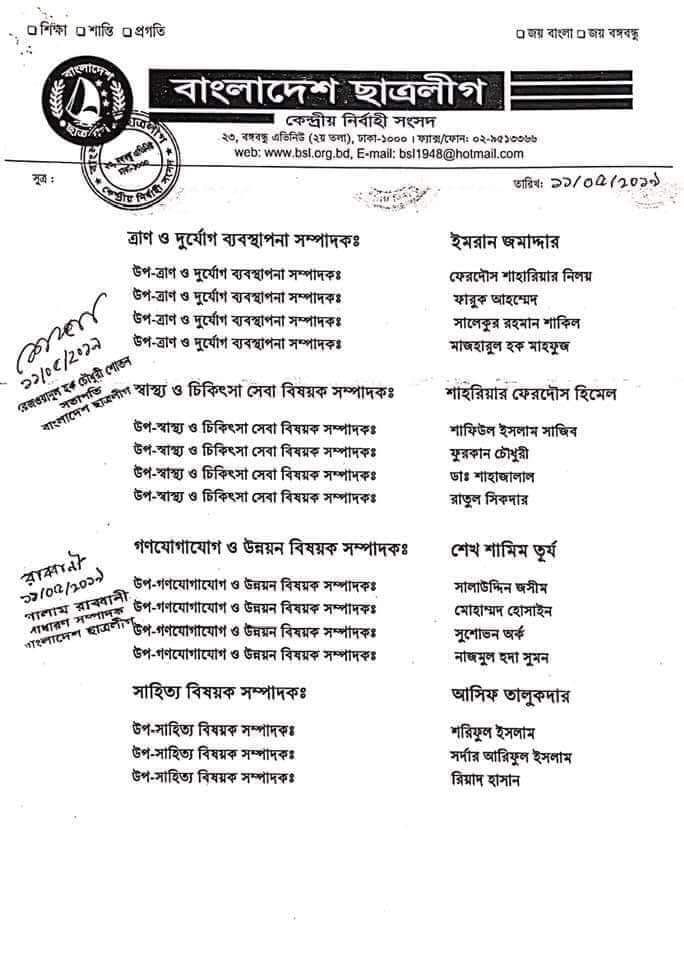 □ শিক্ষা □ শান্তি □ প্রগতি
□ জয় বাংলা □ জয় বঙ্গবন্ধু
বাংলাদেশ
ছাত্রলীগ
বাংলাদেশ ছাত্রলীগ
কেন্দ্রীয় নির্বাহী সংসদ
২৩, বঙ্গবন্ধু এভিনিউ (২য় তলা), ঢাকা-১০০০ । ফ্যাক্স/ফোন: ০২-৯৫১৩৩৬৬
web: www.bsl.org.bd, E-mail: bsl1948@hotmail.com
সূত্র :
তারিখ: ১১/০৫/২০১৯
ত্রাণ ও দুর্যোগ ব্যবস্থাপনা সম্পাদকঃ ইমরান জমাদ্দার
উপ-ত্রাণ ও দুর্যোগ ব্যবস্থাপনা সম্পাদকঃ ফেরদৌস শাহারিয়ার নিলয়
উপ-ত্রাণ ও দুর্যোগ ব্যবস্থাপনা সম্পাদকঃ ফারুক আহম্মেদ
উপ-ত্রাণ ও দুর্যোগ ব্যবস্থাপনা সম্পাদকঃ সালেকুর রহমান শাকিল
উপ-ত্রাণ ও দুর্যোগ ব্যবস্থাপনা সম্পাদকঃ মাজহারুল হক মাহফুজ
১১/০৫/২০১৯
রেজওয়ানুল হক চৌধুরী শোভন
সভাপতি
বাংলাদেশ ছাত্রলীগ
স্বাস্থ্য ও চিকিৎসা সেবা বিষয়ক সম্পাদকঃ শাহরিয়ার ফেরদৌস হিমেল
উপ-স্বাস্থ্য ও চিকিৎসা সেবা বিষয়ক সম্পাদকঃ শাফিউল ইসলাম সাজিব
উপ-স্বাস্থ্য ও চিকিৎসা সেবা বিষয়ক সম্পাদকঃ ফুরকান চৌধুরী
উপ-স্বাস্থ্য ও চিকিৎসা সেবা বিষয়ক সম্পাদকঃ ডাঃ শাহাজালাল
উপ-স্বাস্থ্য ও চিকিৎসা সেবা বিষয়ক সম্পাদকঃ রাতুল সিকদার
গণযোগাযোগ ও উন্নয়ন বিষয়ক সম্পাদকঃ শেখ শামিম তূর্য
উপ-গণযোগাযোগ ও উন্নয়ন বিষয়ক সম্পাদকঃ সালাউদ্দিন জসীম
উপ-গণযোগাযোগ ও উন্নয়ন বিষয়ক সম্পাদকঃ মোহাম্মদ হোসাইন
উপ-গণযোগাযোগ ও উন্নয়ন বিষয়ক সম্পাদকঃ সুশোভন অর্ক
উপ-গণযোগাযোগ ও উন্নয়ন বিষয়ক সম্পাদকঃ নাজমুল হুদা সুমন
রাব্বানী
১১/০৫/২০১৯
গোলাম রাব্বানী
সাধারণ সম্পাদক
বাংলাদেশ ছাত্রলীগ
সাহিত্য বিষয়ক সম্পাদকঃ আসিফ তালুকদার
উপ-সাহিত্য বিষয়ক সম্পাদকঃ শরিফুল ইসলাম
উপ-সাহিত্য বিষয়ক সম্পাদকঃ সর্দার আরিফুল ইসলাম
উপ-সাহিত্য বিষয়ক সম্পাদকঃ রিয়াদ হাসান